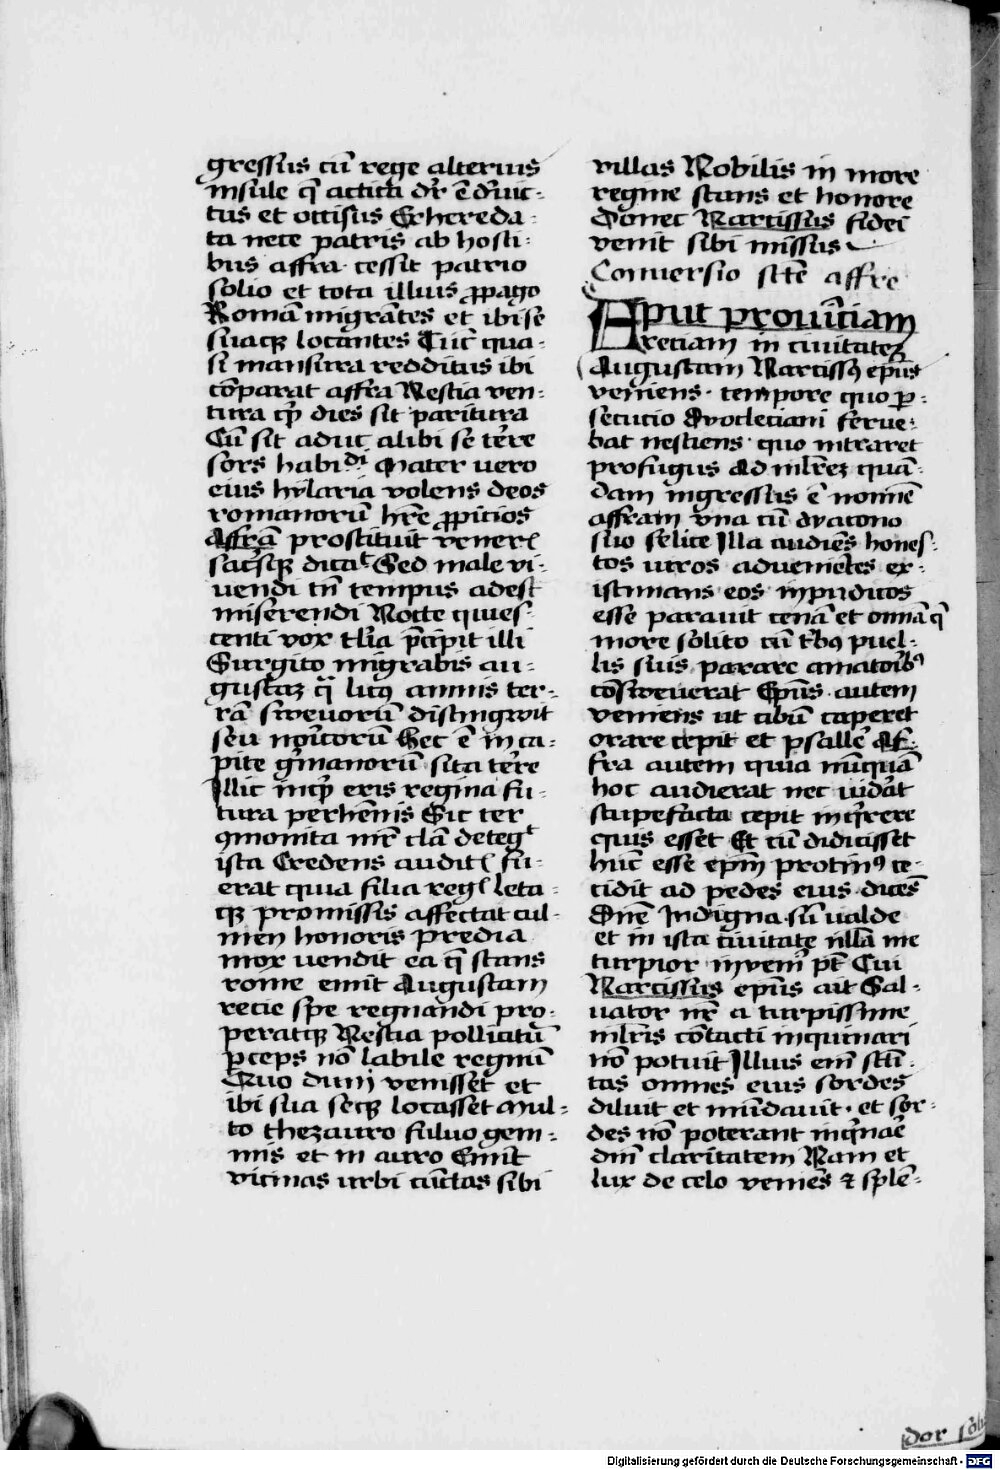 gressus cū rege alterius
insule q̄ actīa dr̄ ē d'uic-
tus et occisus Exhereda-
ta nece patris ab hosti-
bus affra cessit patrio
solio et tota illius ꝓpago
Romā migrātes et ibi se
suaqꝫ locantes Tūc qua-
si mansura redditus ibi
cōparat affra Nescia ven-
tura qꝫ dies sit paritura
Cū sit aduc alibi se tēre
sors habidi Mater uero
eius hylaria volens deos
romanorū hr̄e ꝓpicios
Affrā prostituit veneri
sacrisqꝫ dicat Sed male vi-
uendi tn̄ tempus adest
miserendi Nocte quies-
centi vox tl̄ia p̄cipit illi
Surgito migrabis au-
gustaꝫ q̄ licꝰ amnis ter-
rā sweuorū distingwit
seu noīcorū Hec ē in ca-
pite gͥmanorū sita tēre
Illic inqͥ eris regina fu-
tura perhēnis Sic ter
ꝯmonita mr̄i clā deteg̾
ista Credens audit fu-
erat quia filia reg̾ leta-
qꝫ promissis affectat cul-
men honoris Predia
mox uendit ea q̄ stans
rome emit Augustam
recie spe regnandi pro-
peratqꝫ Nescia pollicitū
p̄ceps nō labile regnū
Quo dum venisset et
ibi sua secqꝫ locasset Mul-
to thezauro fuluo gem-
mis et in auro Emit
vicinas urbi cūctas sibi
villas Nobilis in more
regine stans et honore
Donec Narcissus fidei
venit sibi missus
Conuersio scē affre
Aput prouīciam
reciam in ciuitateꝫ
Augustam Narcissꝰ ep̄us
veniens tempore quo ꝑ-
secucio dyocleciani ferue-
bat nesciens quo intraret
profugus ad ml̄ieꝫ quā-
dam ingressus ē nomīe
affram vna cū dyacono
suo felice Illa audiēs hones-
tos uiros adueniētes ex-
istimans eos inpudicos
esse parauit cenā et omīa q̄
more solito cū tͥbꝰ puel-
lis suis parare amatoribꝰ
cōsweuerat Ep̄us autem
veniens ut cibū caperet
orare cepit et psallē Af-
fra autem quia nūquā
hoc audierat nec uidāt
stupefacta cepit inqͥrere
quis esset Et cū didicisset
hūc esse ep̄m protinꝰ ce-
cidit ad pedes eius dicēs
Dn̄e Indigna sū ualde
et in ista ciuitate nulla me
turpior inuenī pt̄ Cui
Narcissus ep̄us ait Sal-
uator nr̄ a turpissime
ml̄ieris cōtacti inquinari
nō potuit Illius em̄ scī-
tas omnes eius sordes
diluit et mūdauit et sor-
des nō poterant inqͥnaē
dīni claritatem Nam et
lux de celo veniēs ⁊ splē-